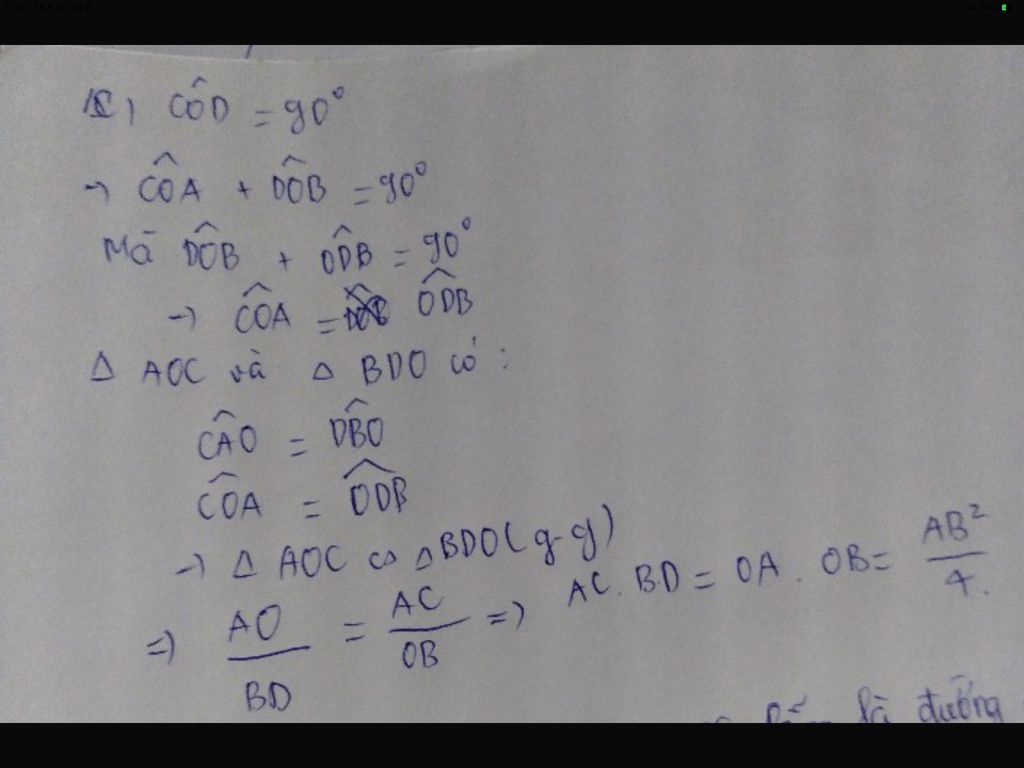 c) CÔD = 90°
→ CÔA + DÔB = 90°
Mà DÔB + ODB = 90°
→ CÔA = ODB
Δ AOC và Δ BDO có:
CÂO = DBO
CÔA = ODB
→ Δ AOC ∽ Δ BDO (g-g)
=> AO/BD = AC/OB => AC. BD = OA. OB = AB²/4.
là đường